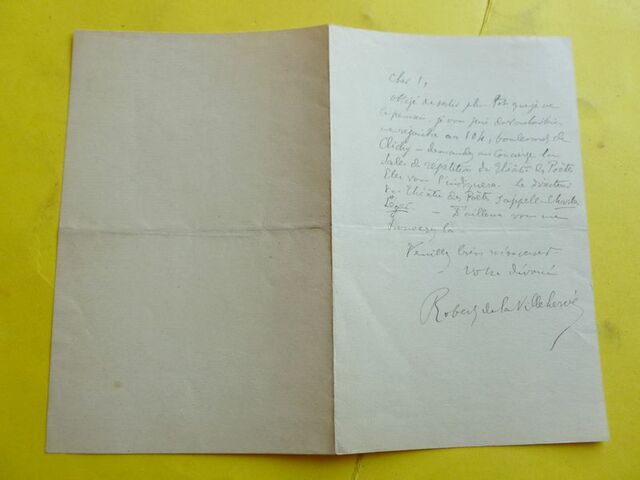 Cher
obligé de sortir plus tôt que je ne
le pensais, je vous prie de vouloir bien
me rejoindre au 104, boulevard de
Clichy – demandez au Concierge la
salle de répétition du Théâtre des Poètes
Elle vous l'indiquera. Le directeur
du Théâtre des Poètes s'appelle Charles
Léger – D'ailleurs vous me
trouverez là
Veuillez bien
votre dévoué
Robert de la Villehervé